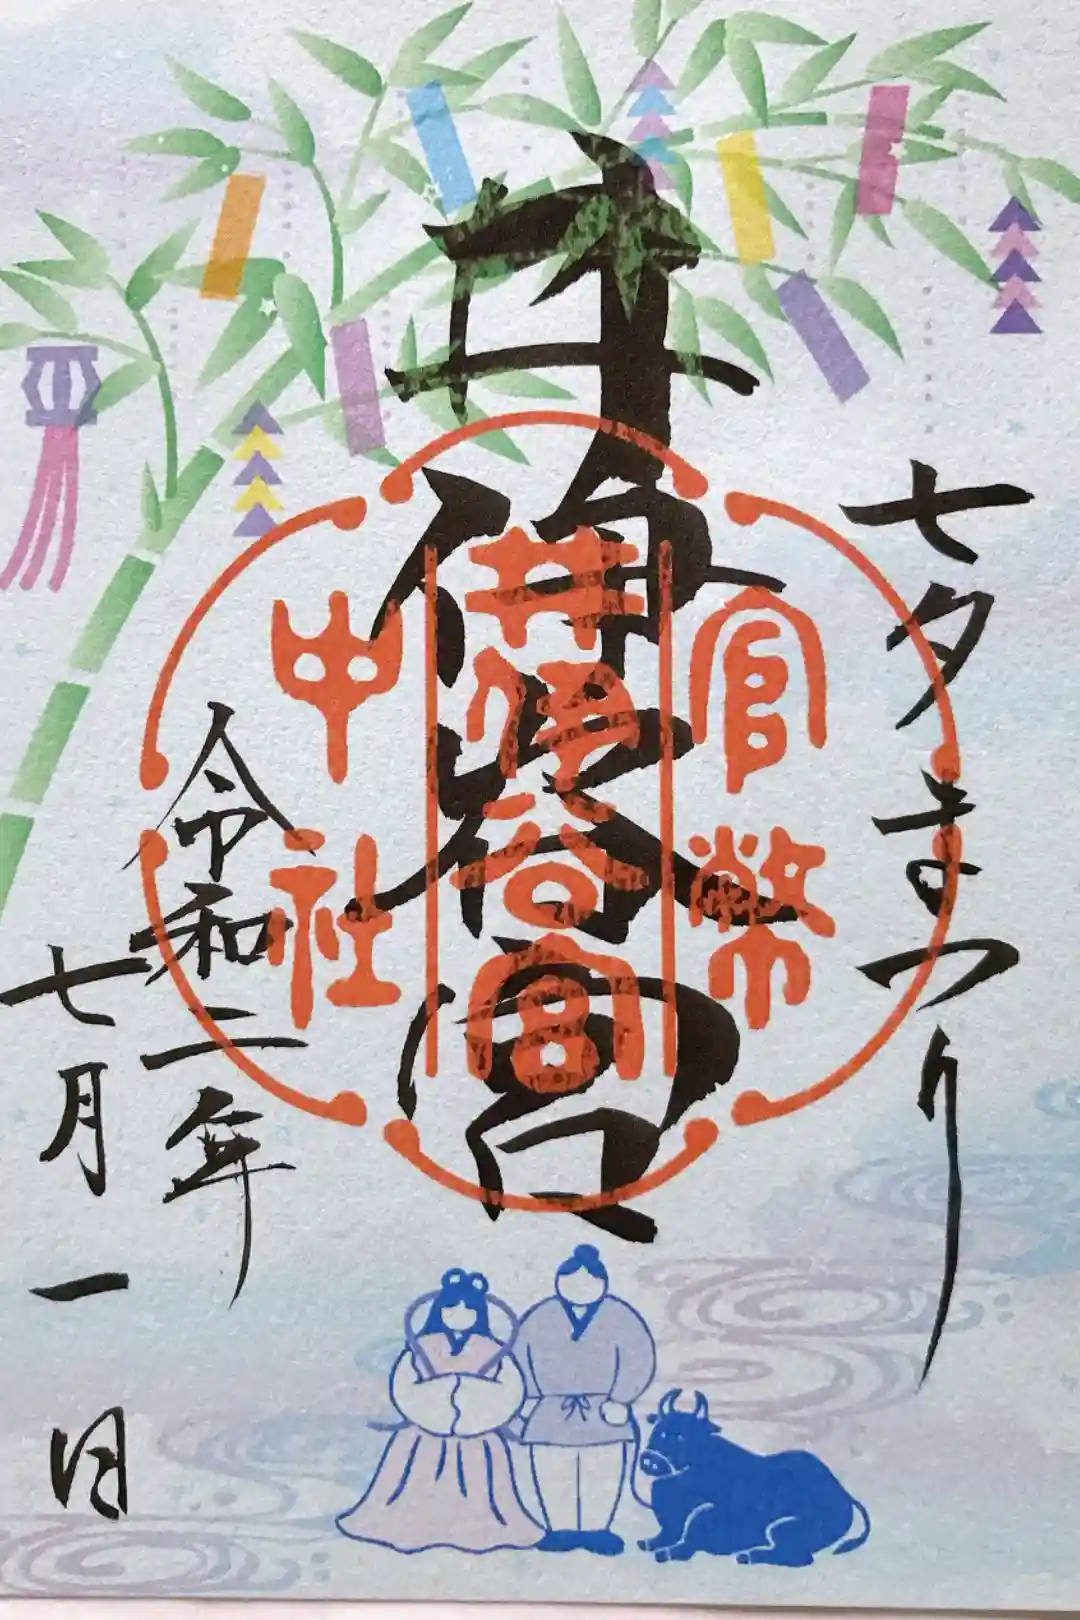 七夕まつり
井伊谷宮
官幣
井伊谷宮
中社
令和二年
七月一日